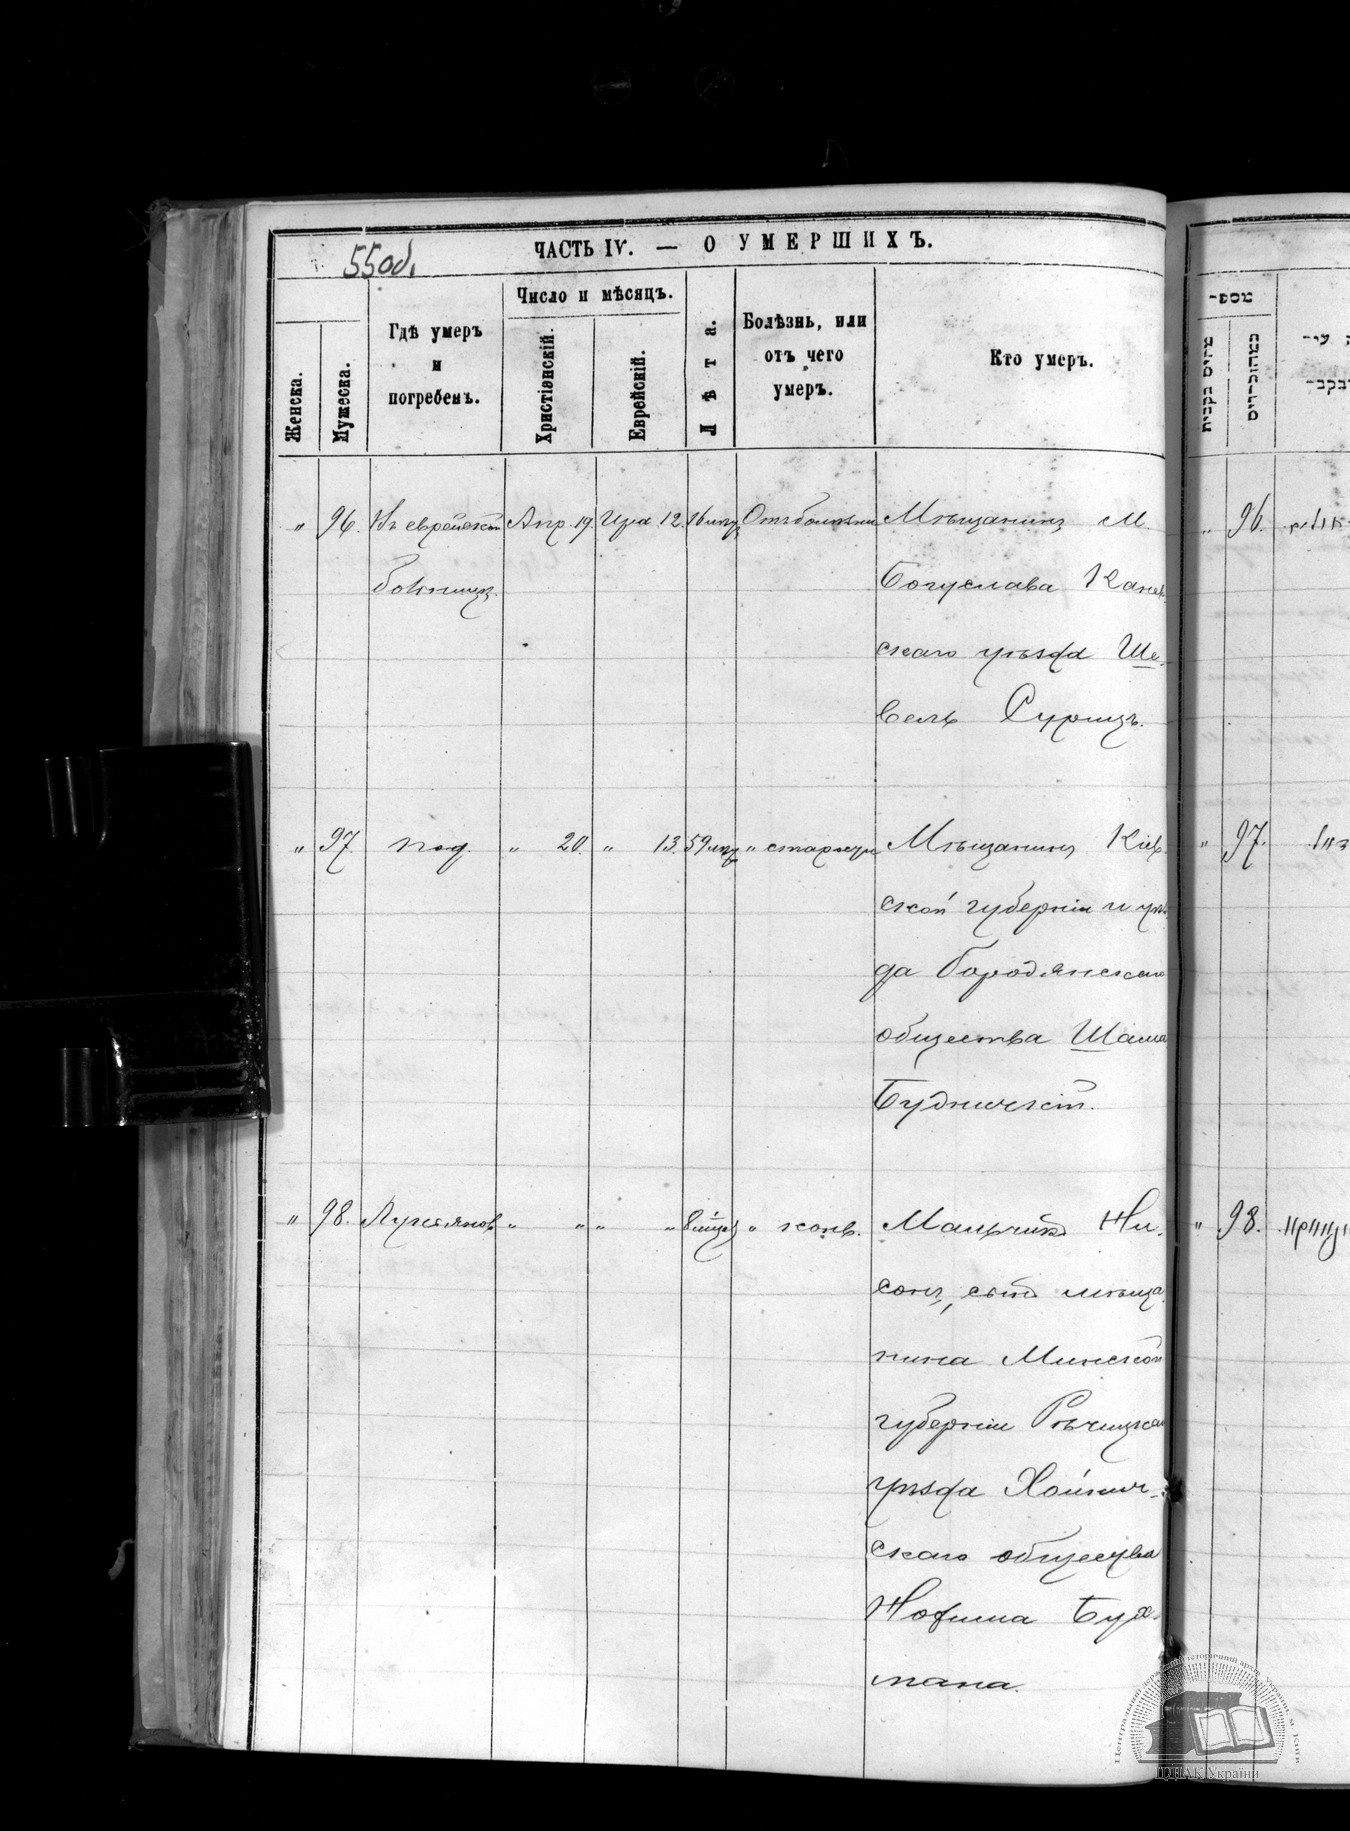 55об.
ЧАСТЬ IV. — О УМЕРШИХЪ.
Женска.
Мужеска.
Гдѣ умеръ
и
погребенъ.
Число и мѣсяцъ.
Христіанскій.
Еврейскій.
Лѣта.
Болѣзнь, или
отъ чего
умеръ.
Кто умеръ.
" 96. Въ еврейской Апр. 19. Ира 12. Мѣщанинъ м.
больницѣ Богуслава Канев
скаго уѣзда Ше-
вель
" 97. под. " 20. " 13. 59 " старости Мѣщанинъ Кіев
ской губерніи и уѣз
да Бородянскаго
общества Шама
" 98. Лукьянов. " " " " 8 " конв. Мальчикъ Ни
сонъ, сынъ мѣща
нина Минской
губерніи Рѣчицкаго
уѣзда Хойнич-
скаго общества
Бух-
мана.
מספר־
96.
97.
98.
ЦДІАК України